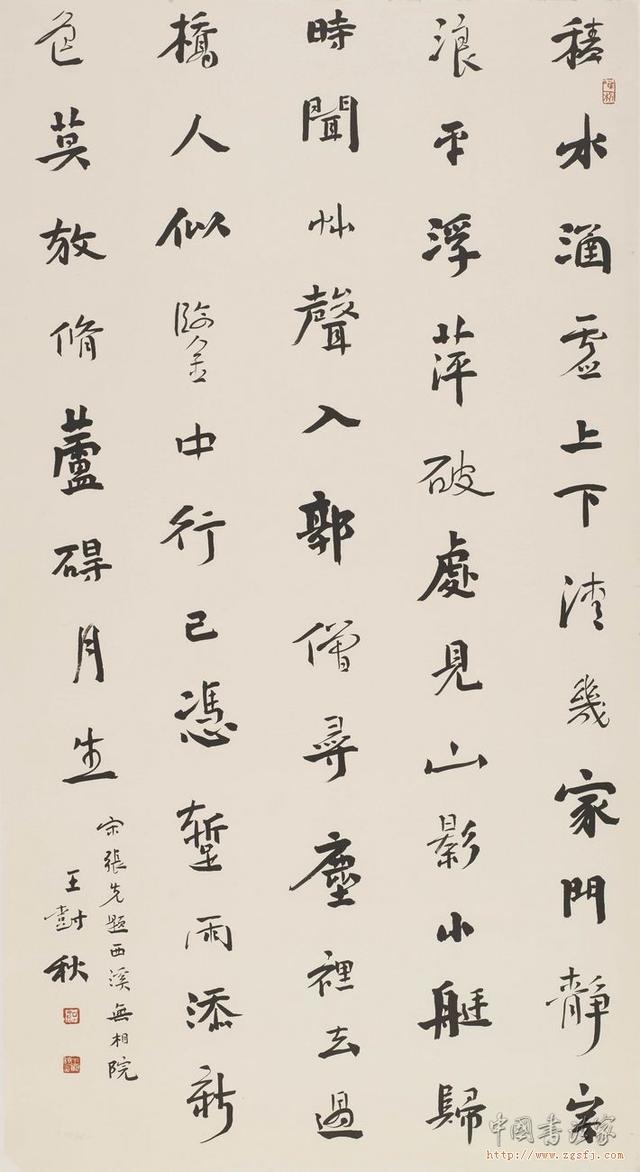 積水涵虛上下清幾家門靜岸
浪平浮萍破處見山影小艇歸
時聞艸聲入郭僧尋塵裡去過
橋人似鑒中行已憑蹔雨添新
色莫放脩蘆碍月生
宋張先題西溪無相院
王尌秋
中國書法家
http://www.zgsfj.com